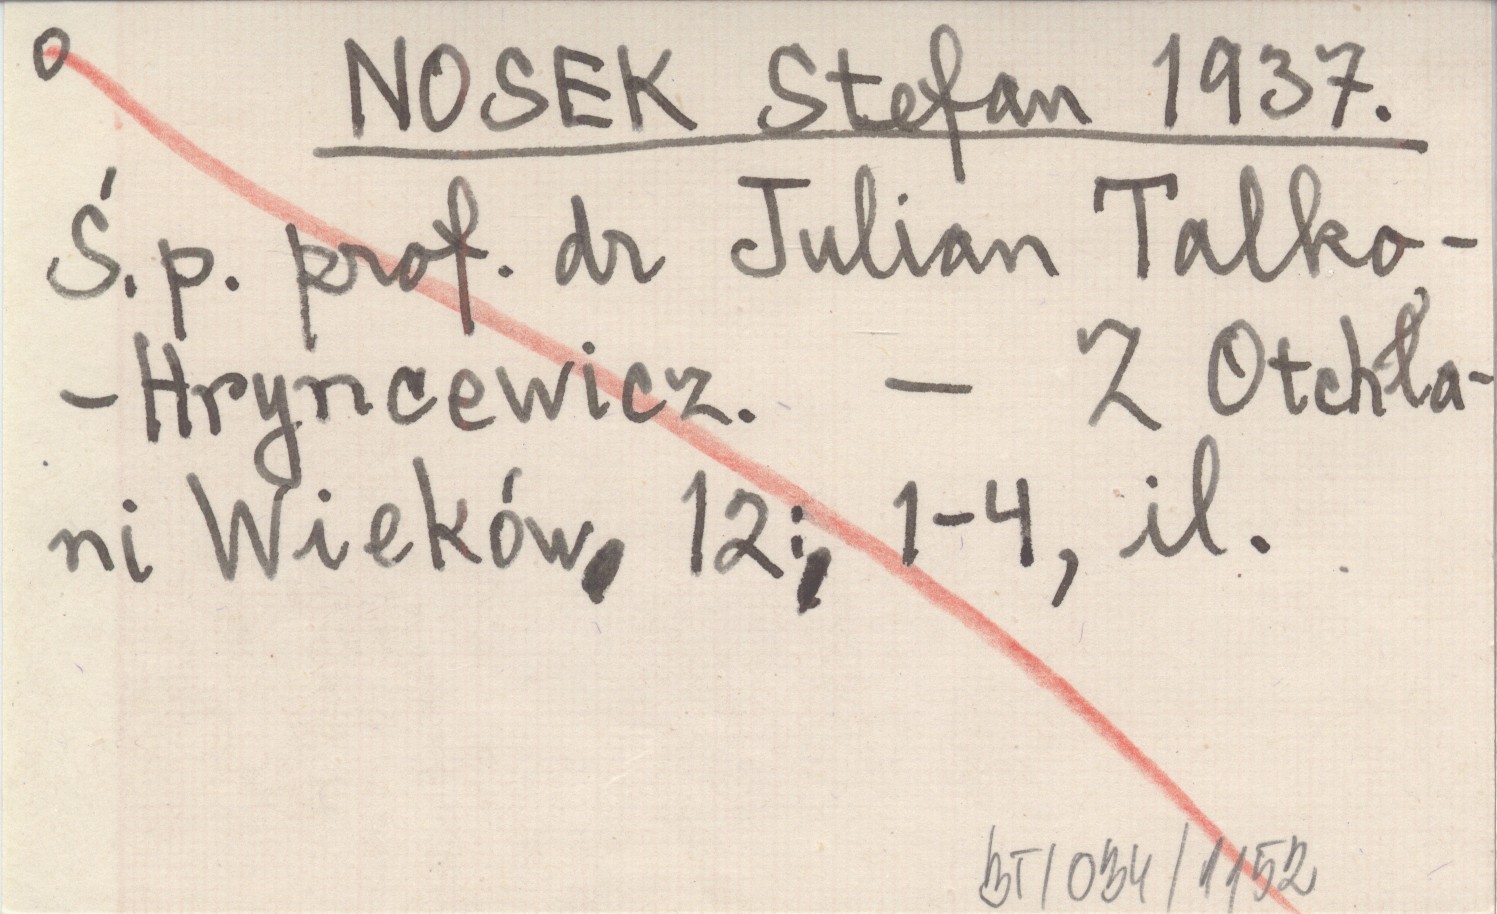 O NOSEK Stefan 1937.
Ś.p. prof. dr Julian Talko-
-Hryncewicz. — Z Otchła-
ni Wieków, 12; 1-4, il.
BT/034/1152